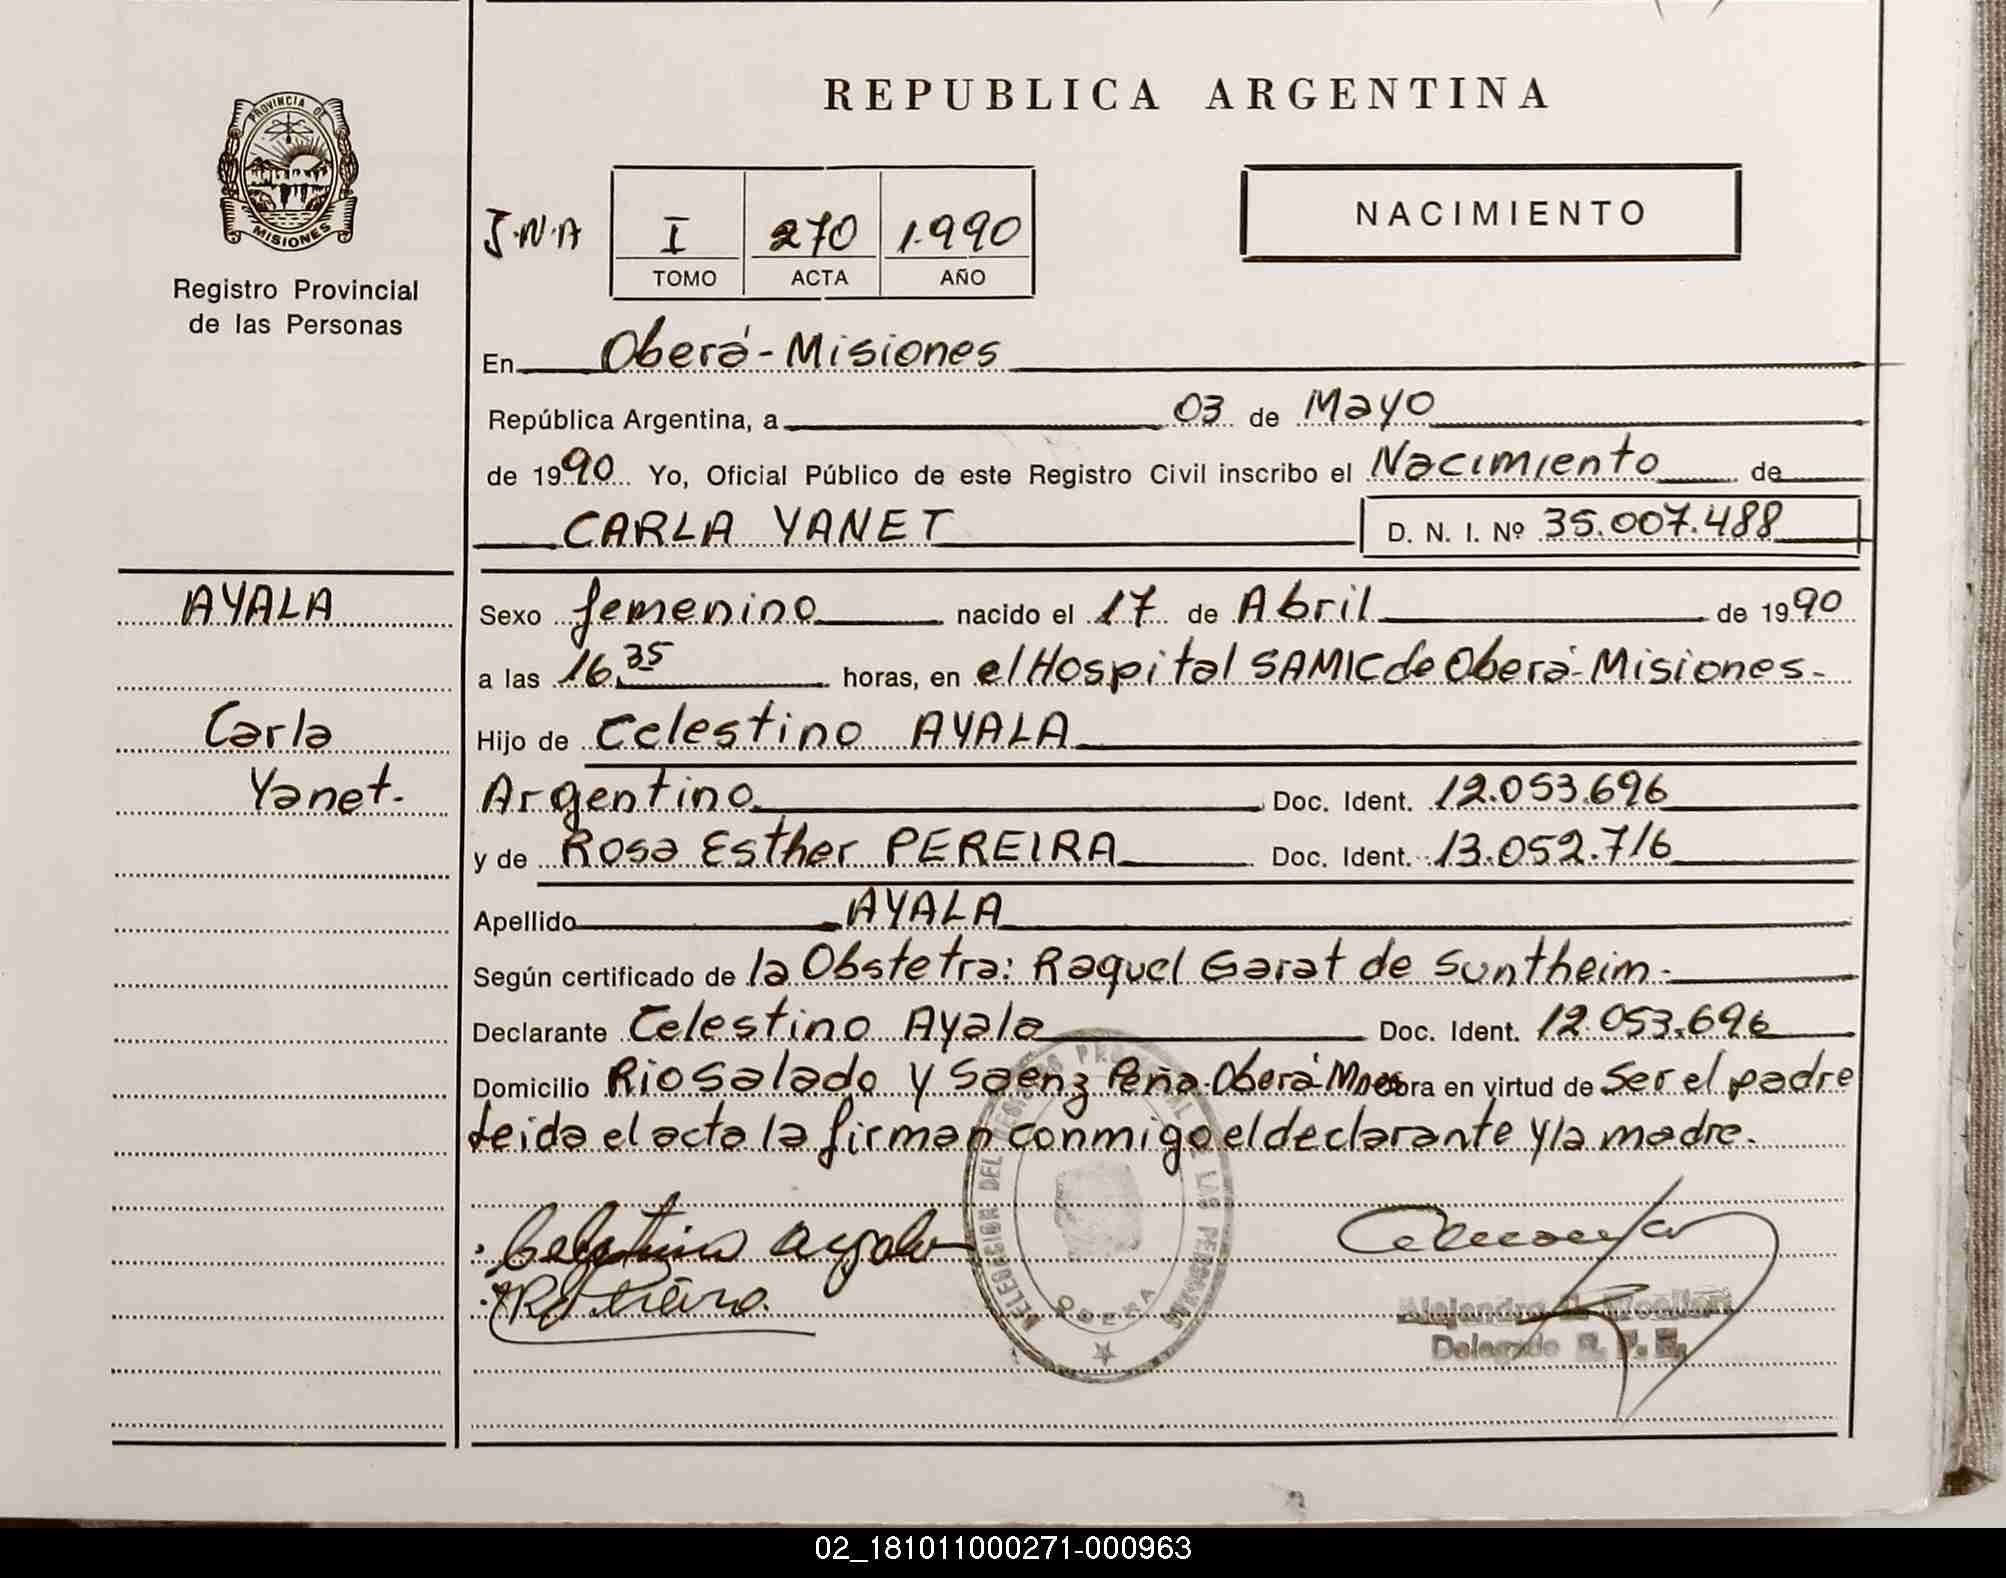 REPUBLICA ARGENTINA
PROVINCIA DE
MISIONES
Registro Provincial
de las Personas
NACIMIENTO
I.N.A I 270 1.990
TOMO ACTA AÑO
En Oberá-Misiones
República Argentina, a 03 de Mayo
de 1990 Yo, Oficial Público de este Registro Civil inscribo el Nacimiento de
CARLA YANET D. N. I. Nº 35.007.488
AYALA
Carla
Yanet.-
Sexo femenino nacido el 17 de Abril de 1990
a las 16,35 horas, en el Hospital SAMIC de Oberá-Misiones-
Hijo de Celestino AYALA
Argentino Doc. Ident. 12.053.696
y de Rosa Esther PEREIRA Doc. Ident. 13.052.716
Apellido AYALA
Según certificado de la Obstetra: Raquel Garat de Suntheim.-
Declarante Celestino Ayala Doc. Ident. 12.053.696
Domicilio Rio Salado y Saenz Peña-Oberá Mnes obra en virtud de Ser el padre
Leida el acta la firman conmigo el declarante y la madre.
Celestino Ayala
DELEGACION DEL REGISTRO PROVINCIAL DE LAS PERSONAS
OBERA
Alejandro
Delegado R. P. P.
02_181011000271-000963